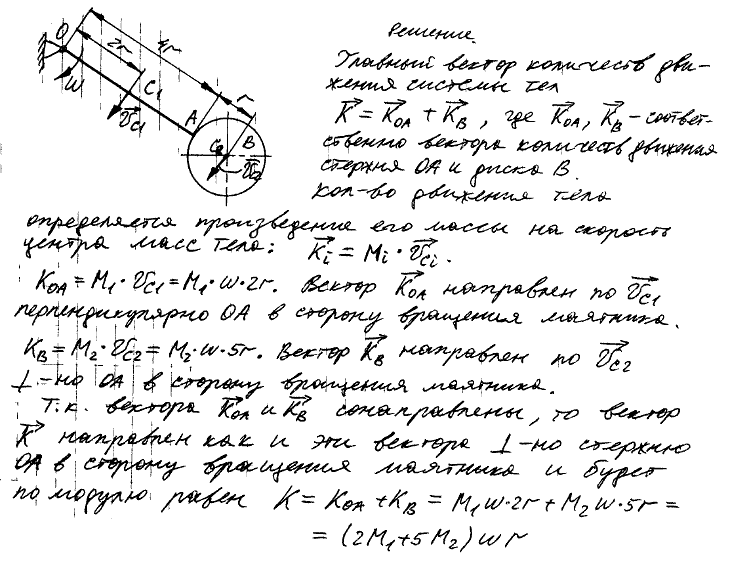 Решение.
O
2r
4r
r
ω
C1
VC1
A
C2
B
VC2
Главный вектор количеств дви-
жения системы тел
K = KOA + KB, где KOA, KB - соответ-
ственно вектора количеств движения
стержня OA и диска B.
Кол-во движения тела
определяется произведение его массы на скорость
центра масс тела: Ki = Mi · VCi.
KOA = M1 · VC1 = M1 · ω · 2r. Вектор KOA направлен по VC1
перпендикулярно OA в сторону вращения маятника.
KB = M2 · VC2 = M2 · ω · 5r. Вектор KB направлен по VC2
⊥-но OA в сторону вращения маятника.
Т.к. вектора KOA и KB сонаправлены, то вектор
K направлен как и эти вектора ⊥-но стержню
OA в сторону вращения маятника и будет
по модулю равен K = KOA + KB = M1 ω · 2r + M2 ω · 5r =
= (2M1 + 5M2) ω r